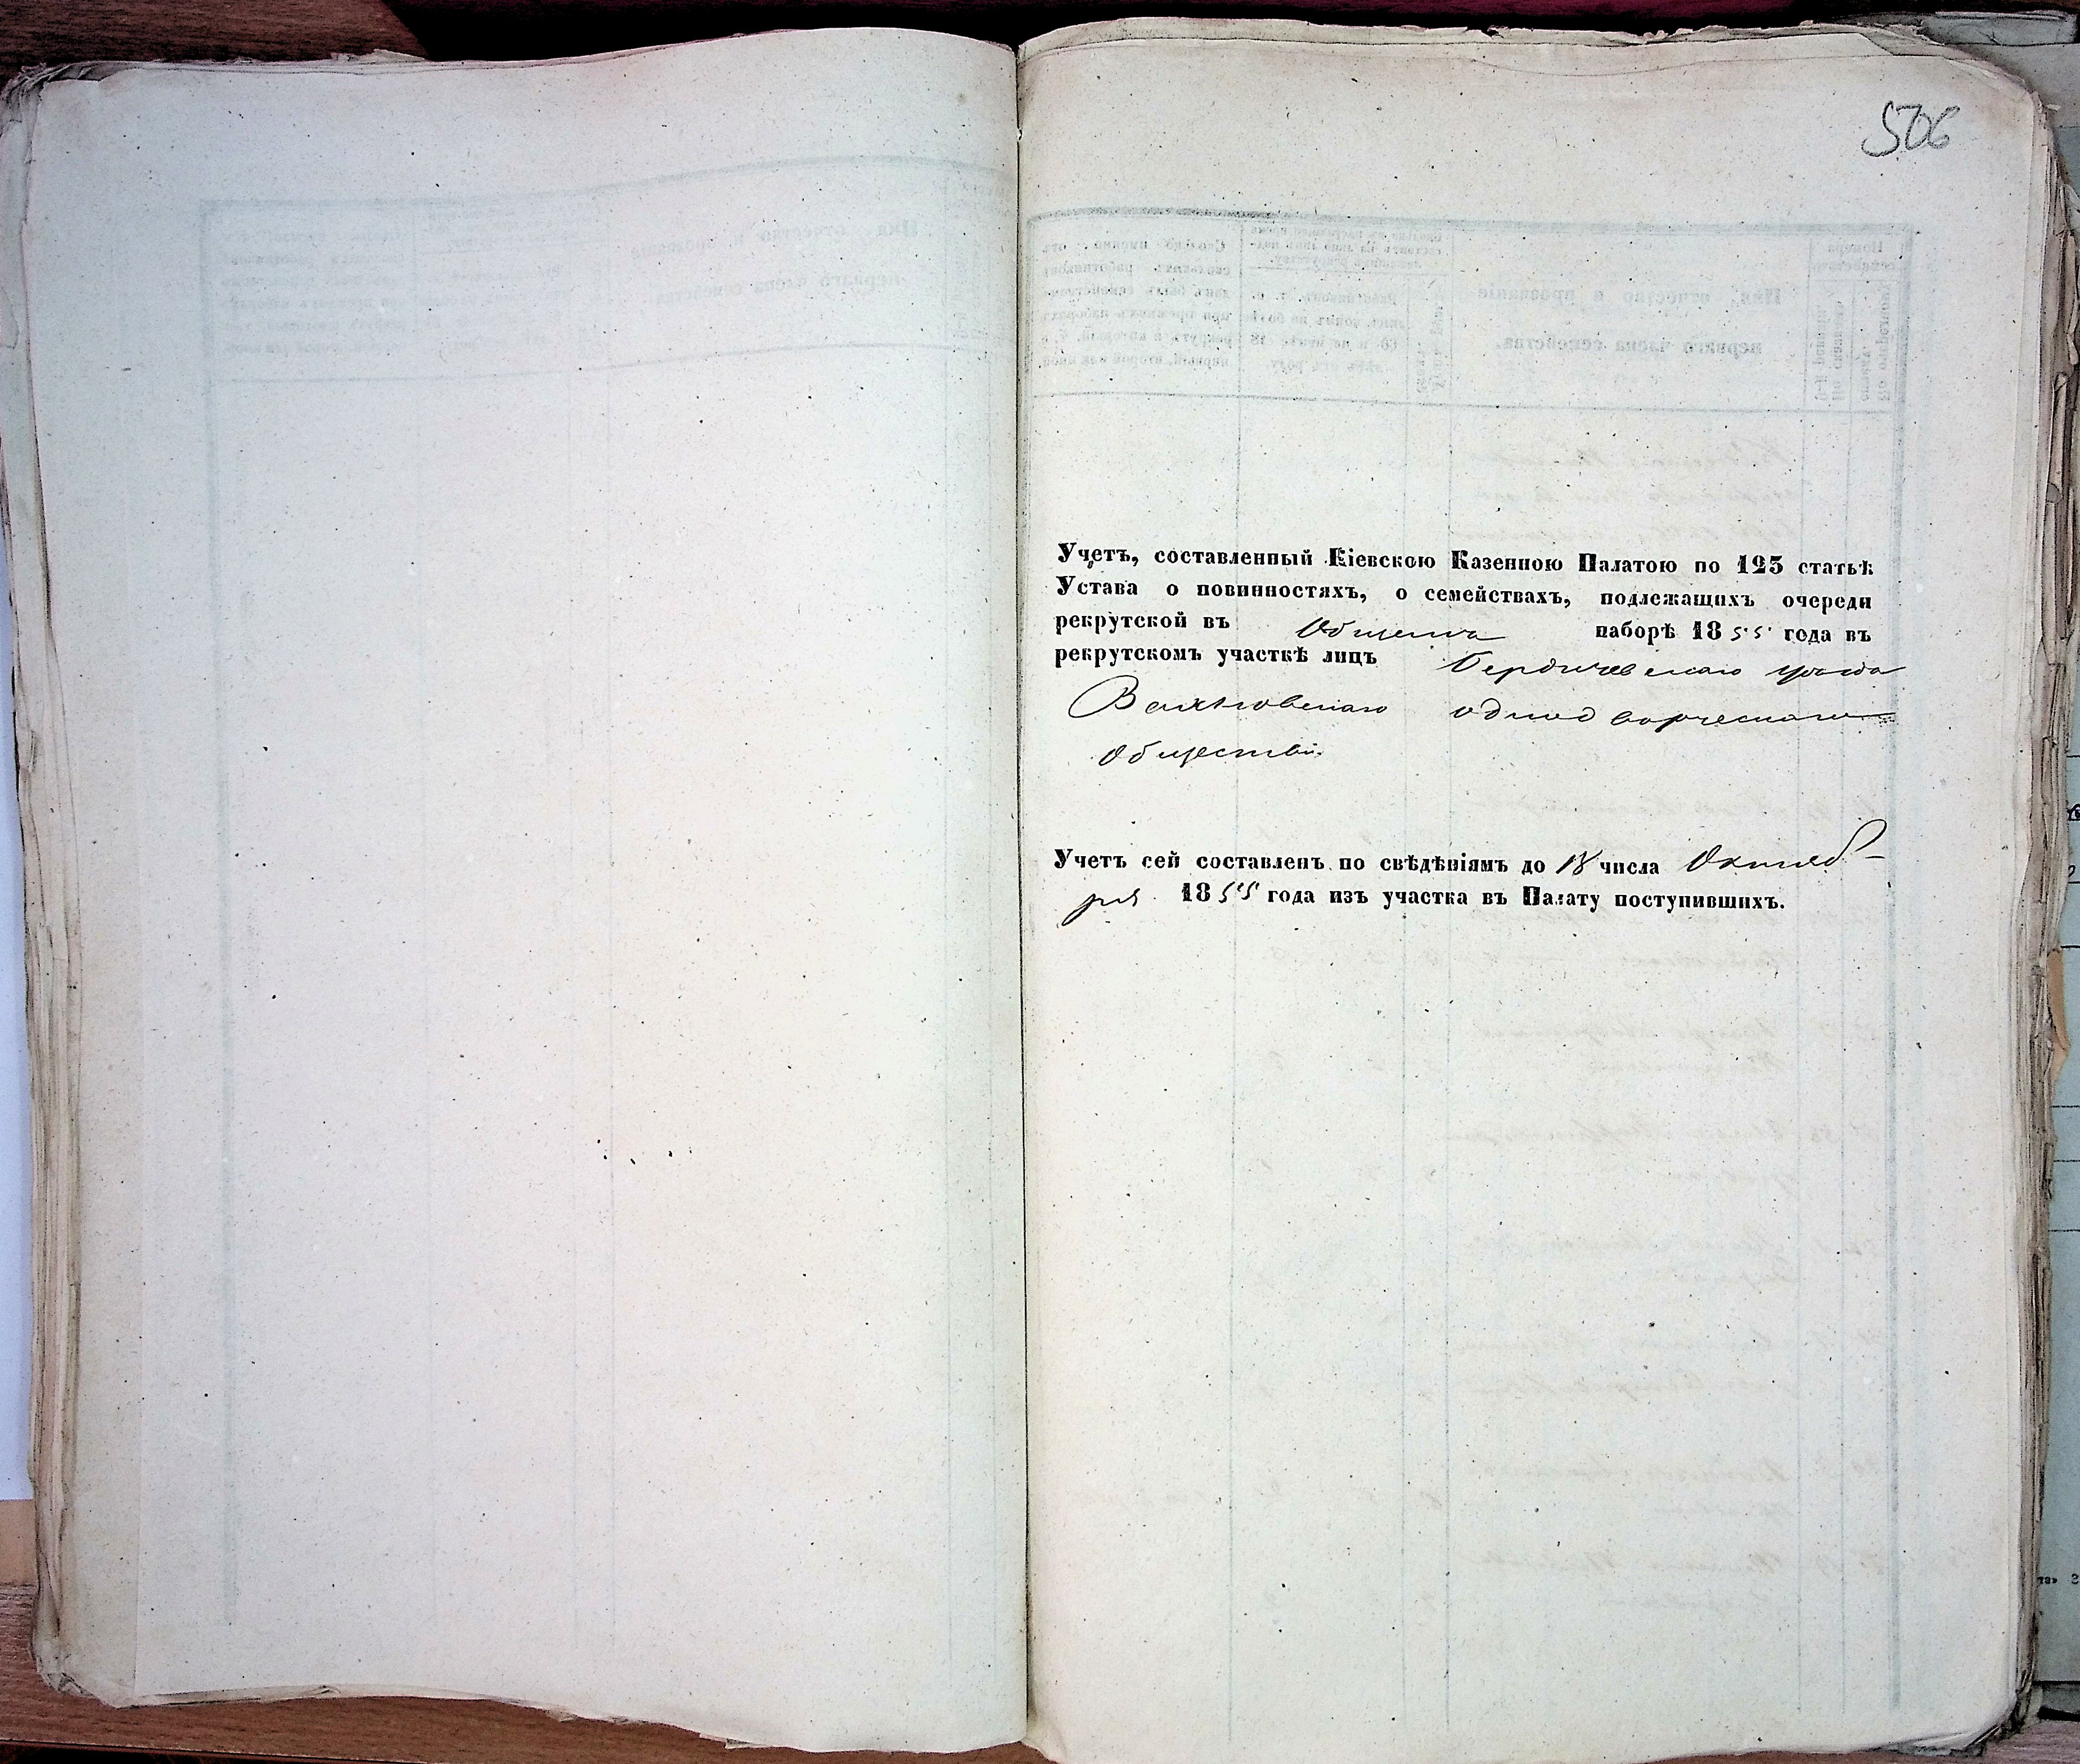 506
Учетъ, составленный Кіевскою Казенною Палатою по 125 статьѣ
Устава о повинностяхъ, о семействахъ, подлежащихъ очереди
рекрутской въ наборѣ 1855 года въ
рекрутскомъ участкѣ лицъ Бердичевскаго уѣзда
однодворческаго
Общества
Учетъ сей составленъ по свѣдѣніямъ до 18 числа Октяб-
ря 1855 года изъ участка въ Палату поступившихъ.